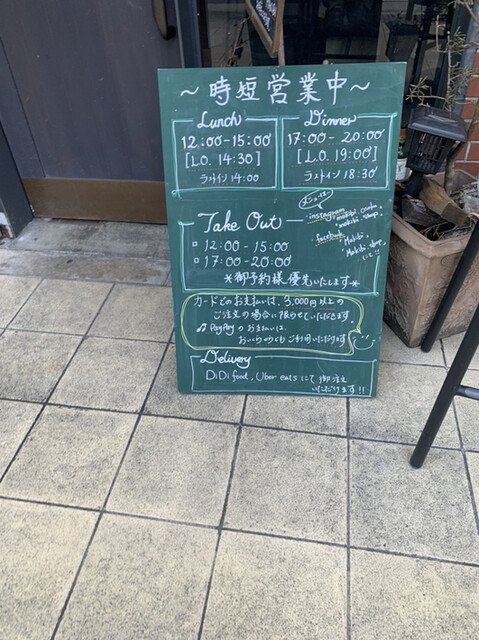 ～時短営業中～
Lunch
12:00-15:00
[L.O. 14:30]
ラストイン 14:00
Dinner
17:00-20:00
[L.O. 19:00]
ラストイン 18:30
Take Out
12:00-15:00
17:00-20:00
※御予約様優先いたします※
メニューは
instagram
facebook
カードでのお支払いは、3,000円以上の
ご注文の場合に限らせていただきます
♫ PayPay のお支払いは、
おいくらからでもご利用いただけます
Delivery
DiDi food, Uber eats にて御注文
いただけます!!